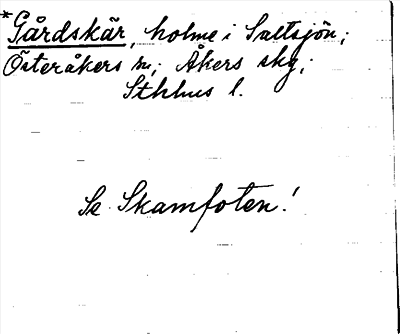 *Gårdskär, holme i Saltsjön;
Österåkers sn; Åkers skg;
Sthlms l.
Se Skamfoten!